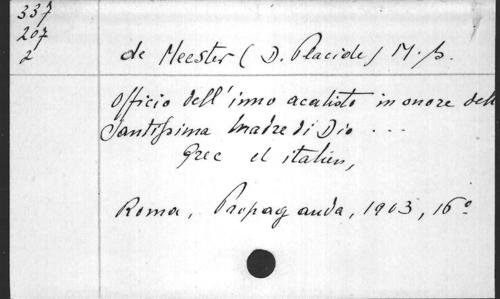 337
207
2
de Meester (D. Placide) M. b.
Officio dell'inno acatisto in onore dell
Santissima Madre di Dio ...
Grec et italien,
Roma, Propaganda, 1903, 16°